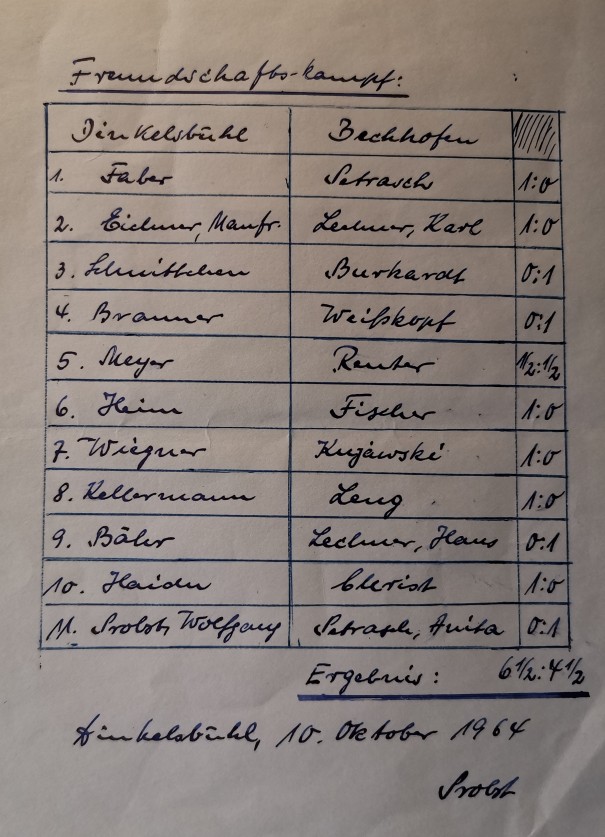 Freundschafts-kampf:
Dinkelsbühl Bechhofen
1. Faber Petrasch 1:0
2. Eichner, Manfr. Lechner, Karl 1:0
3. Schnittchen Burkardt 0:1
4. Branner Weißkopf 0:1
5. Meyer Reuter 1/2:1/2
6. Heim Fischer 1:0
7. Wiegner Kujawski 1:0
8. Kellermann Leng 1:0
9. Bähr Lechner, Hans 0:1
10. Haidn Christ 1:0
11. Probst, Wolfgang Petrasch, Anita 0:1
Ergebnis: 6 1/2:4 1/2
Dinkelsbühl, 10. Oktober 1964
Probst